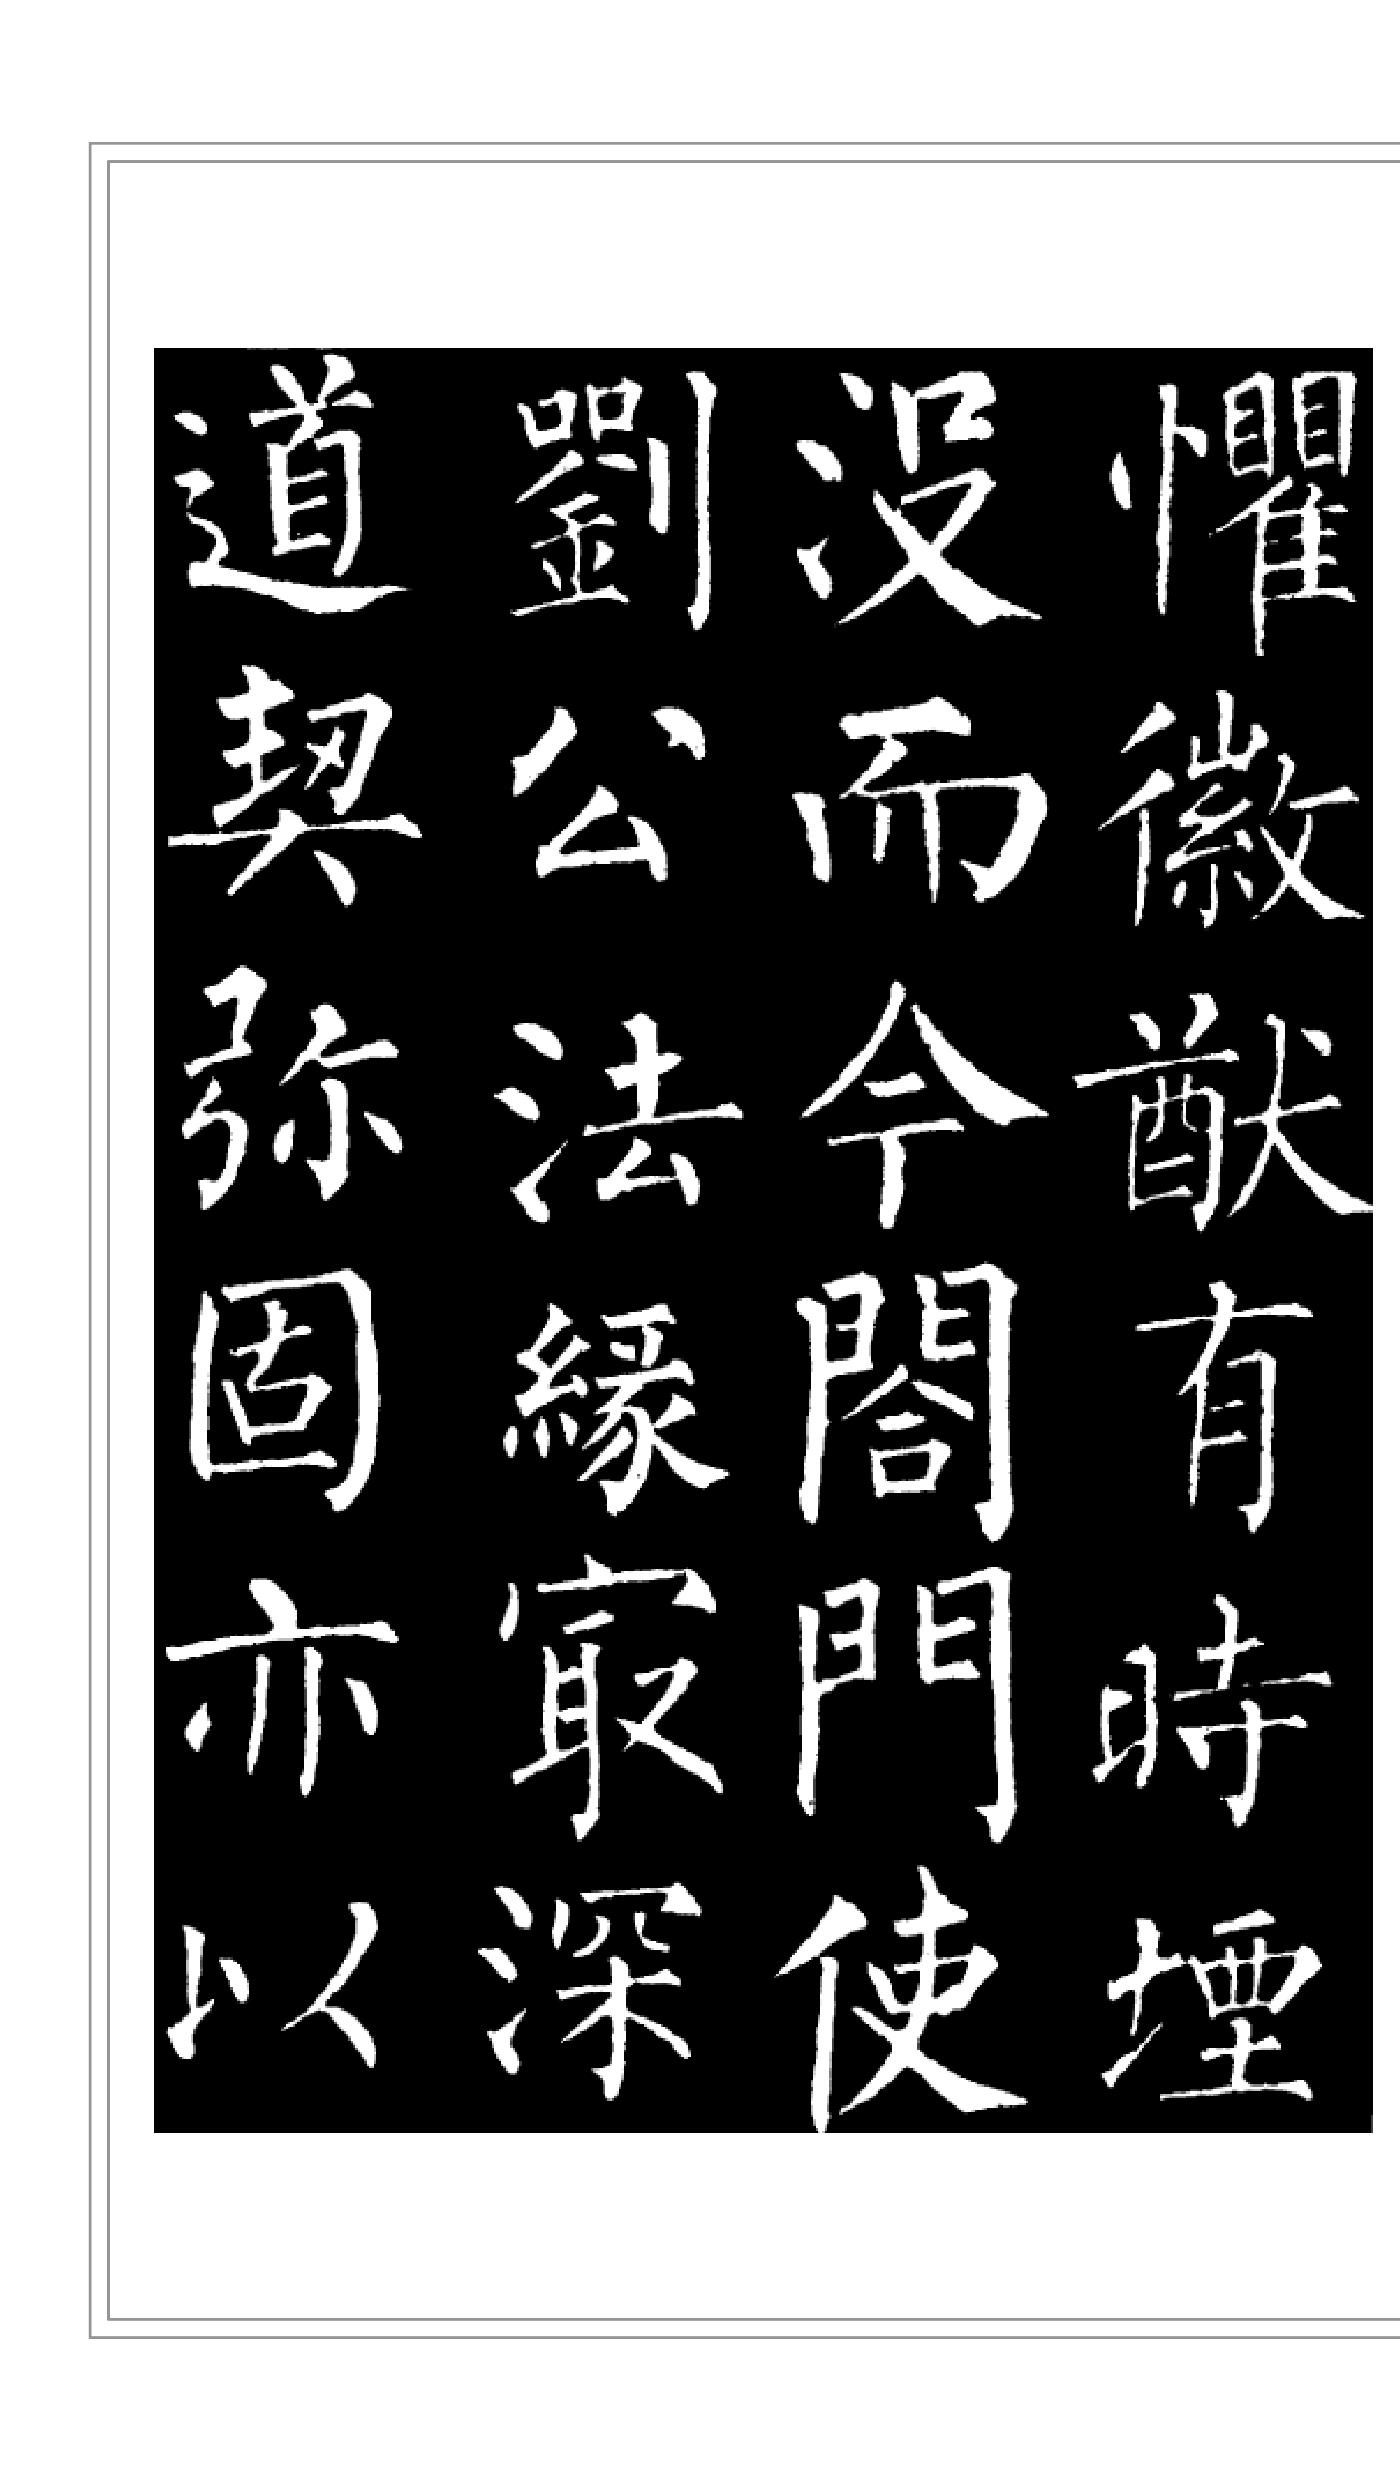 懼徽猷有時堙
没而今閤門使
劉公法緣冣深
道契弥固亦以